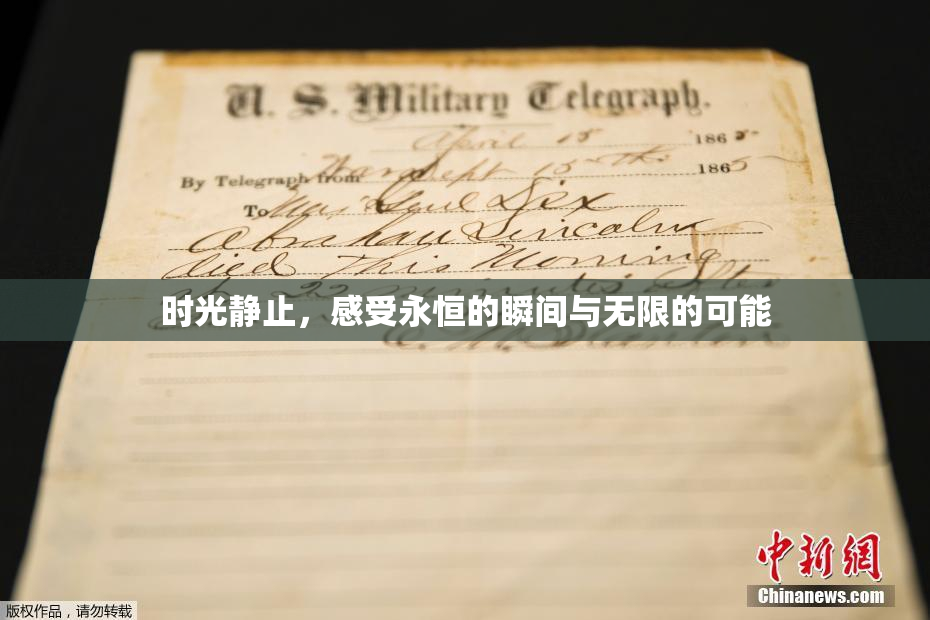 U. S. Military Telegraph.
April 15 1865
By Telegraph from War Dept 15th 1865
To Maj Genl Dix
Abraham Lincoln
died This Morning
at 22 minutes after
时光静止，感受永恒的瞬间与无限的可能
中新网
Chinanews.com
版权作品，请勿转载